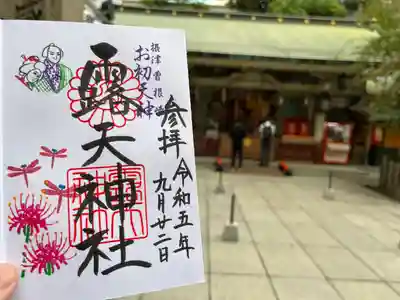 摂津曽根崎
お初天神
露天神社
参拝
令和五年
九月廿二日